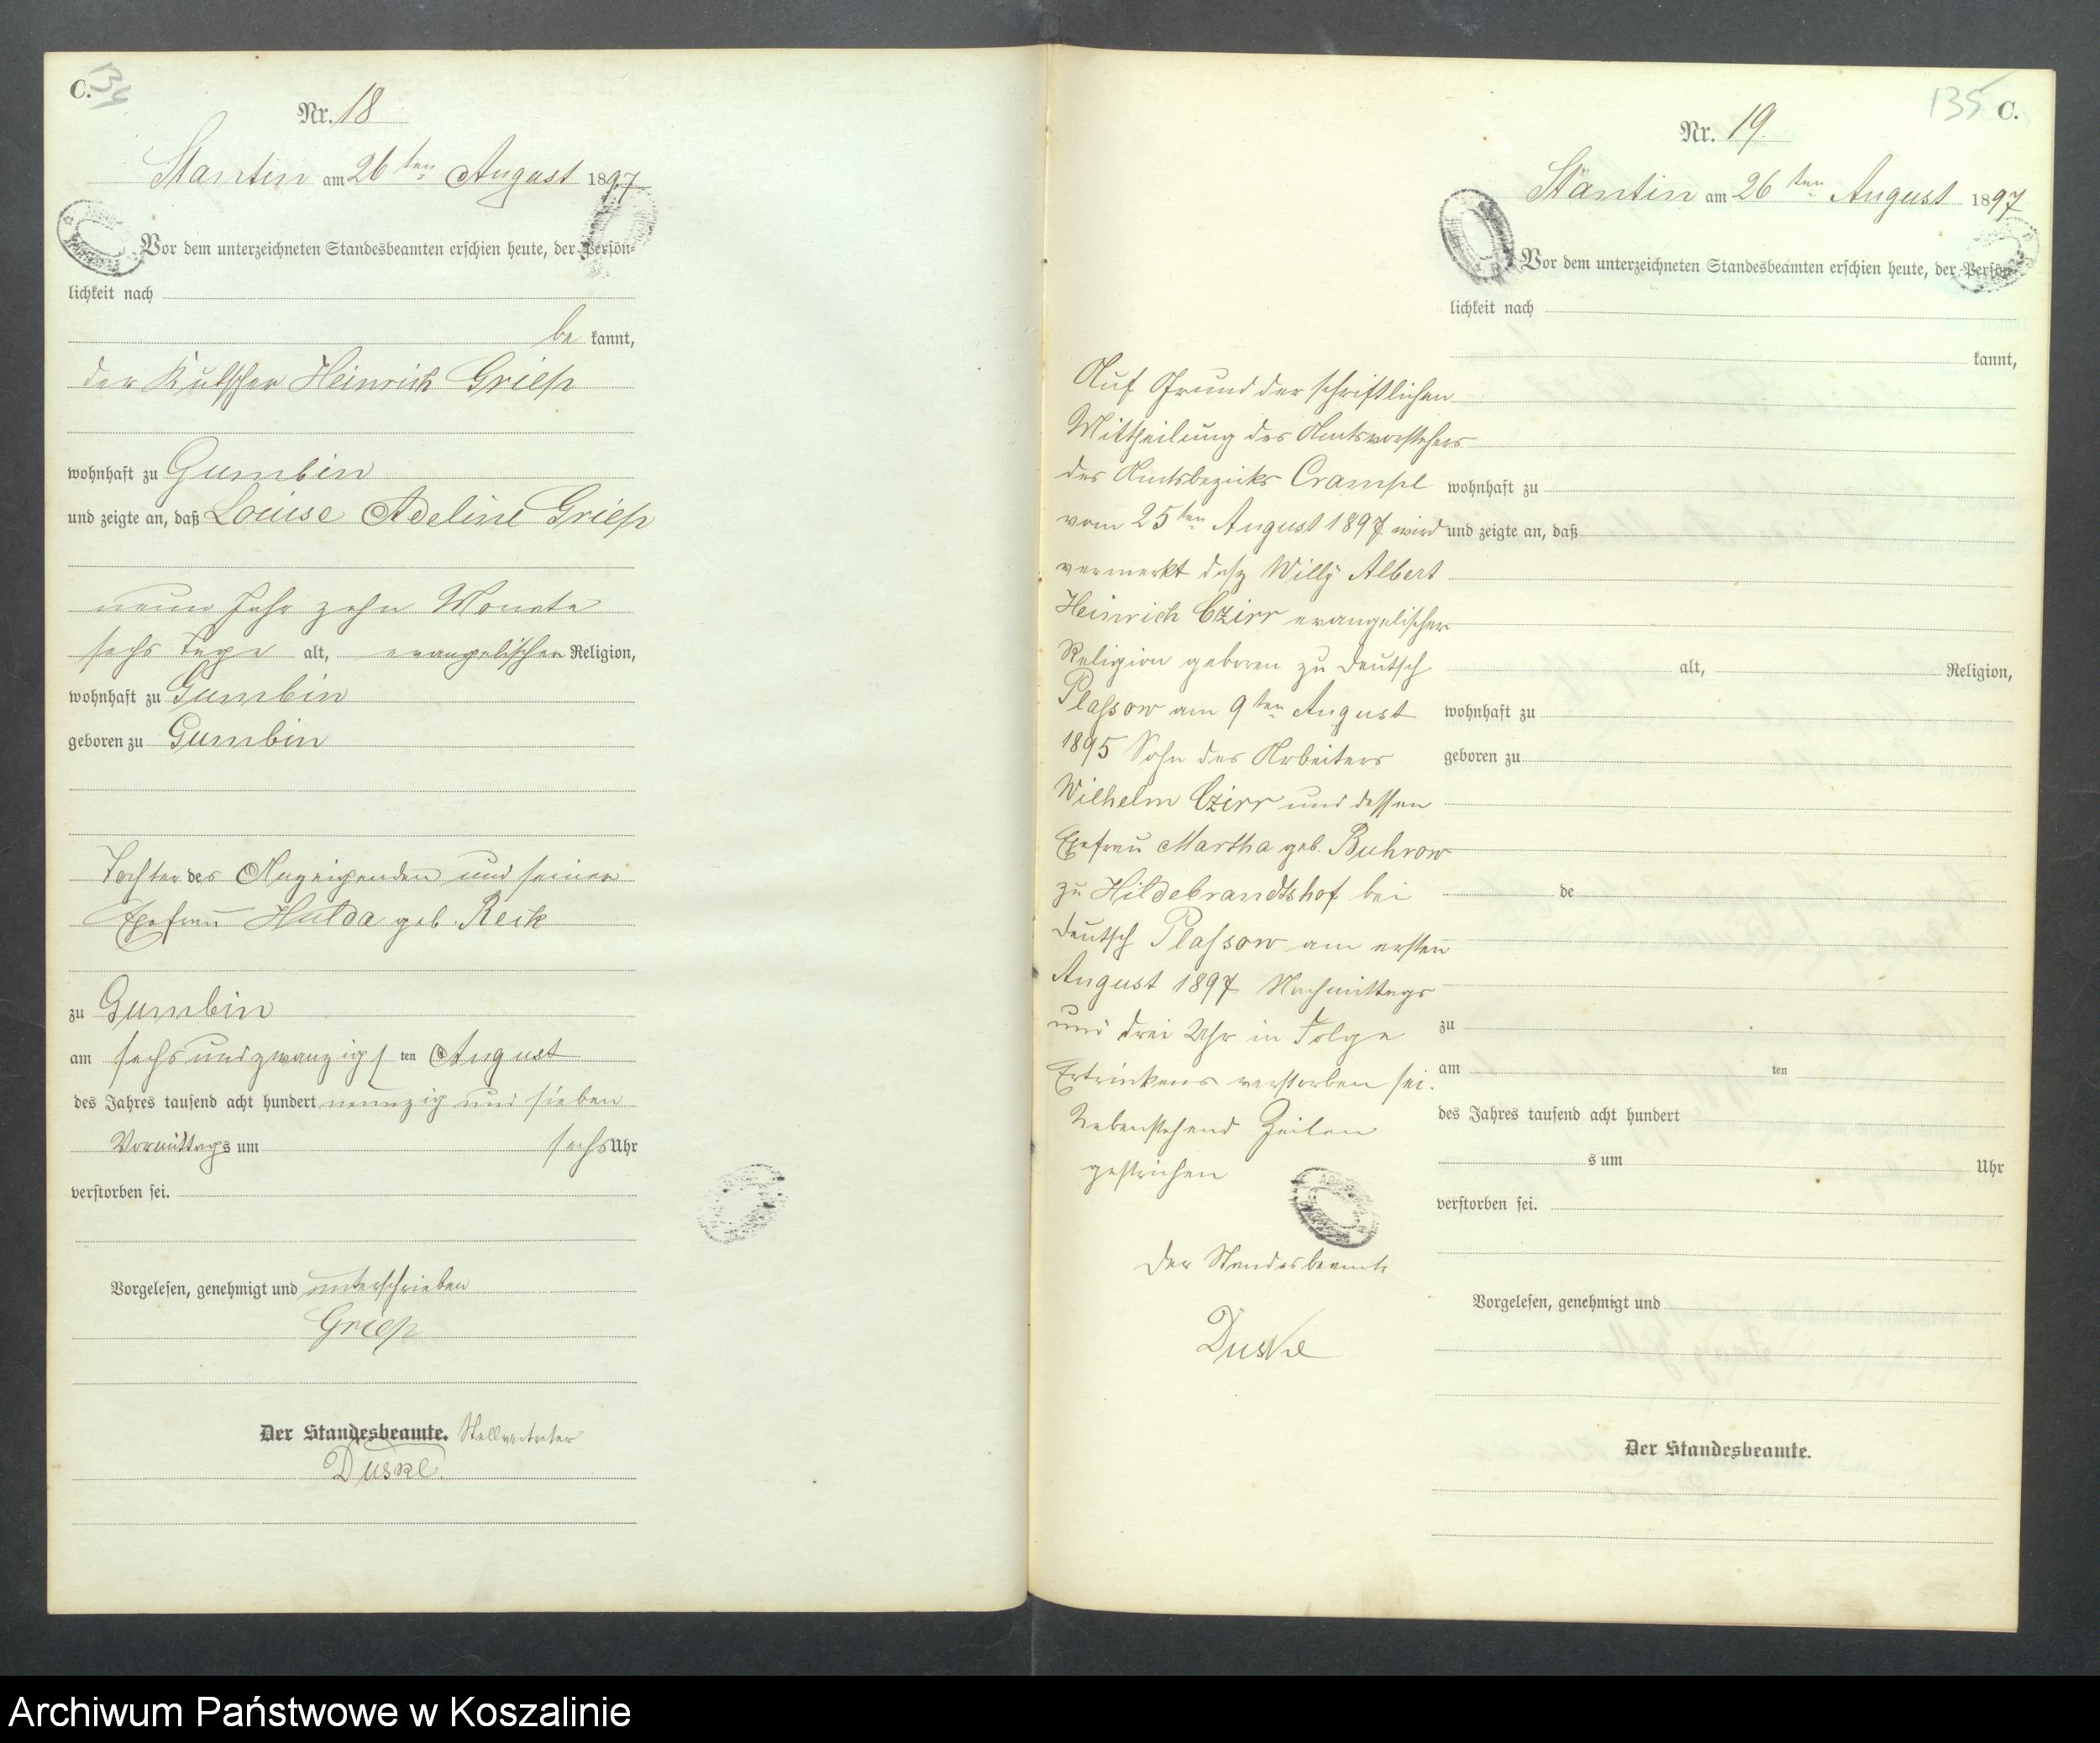 C.
134
Nr. 18
Stantin am 26 ten August 1897
Vor dem unterzeichneten Standesbeamten erschien heute, der Persön-
lichkeit nach
be kannt,
der Kutscher Heinrich Griep
wohnhaft zu Gumbin
und zeigte an, daß Louise Adeline Griep
neun Jahr zehn Monate
sechs Tage alt, evangelischer Religion,
wohnhaft zu Gumbin
geboren zu Gumbin
Tochter des Anzeigenden und seiner
Ehefrau Hulda geb. Reik
zu Gumbin
am sechsundzwanzigsten August
des Jahres tausend acht hundert neunzig und sieben
Vormittags um sechs Uhr
verstorben sei.
Vorgelesen, genehmigt und unterschrieben
Griep
Der Standesbeamte. Stellvertreter
Duske.
135 C.
Nr. 19
Stantin am 26 ten August 1897
Vor dem unterzeichneten Standesbeamten erschien heute, der Persön-
lichkeit nach
kannt,
Auf Grund der schriftlichen
Mittheilung des Amtsvorstehers
des Amtsbezirks Crampe wohnhaft zu
vom 25 ten August 1897 wird und zeigte an, daß
vermerkt daß Willy Albert
Heinrich Czirr evangelischer
Religion geboren zu deutsch alt, Religion,
Plassow am 9 ten August wohnhaft zu
1895 Sohn des Arbeiters geboren zu
Wilhelm Czirr und dessen
Ehefrau Martha geb. Buhrow
zu Hildebrandtshof bei de
deutsch Plassow am ersten
August 1897 Nachmittags
um drei Uhr in Folge zu
Ertrinkens verstorben sei. am ten
Nebenstehend Zeilen des Jahres tausend acht hundert
gestrichen s um Uhr
verstorben sei.
Der Standesbeamte
Vorgelesen, genehmigt und
Duske
Der Standesbeamte.
Archiwum Państwowe w Koszalinie